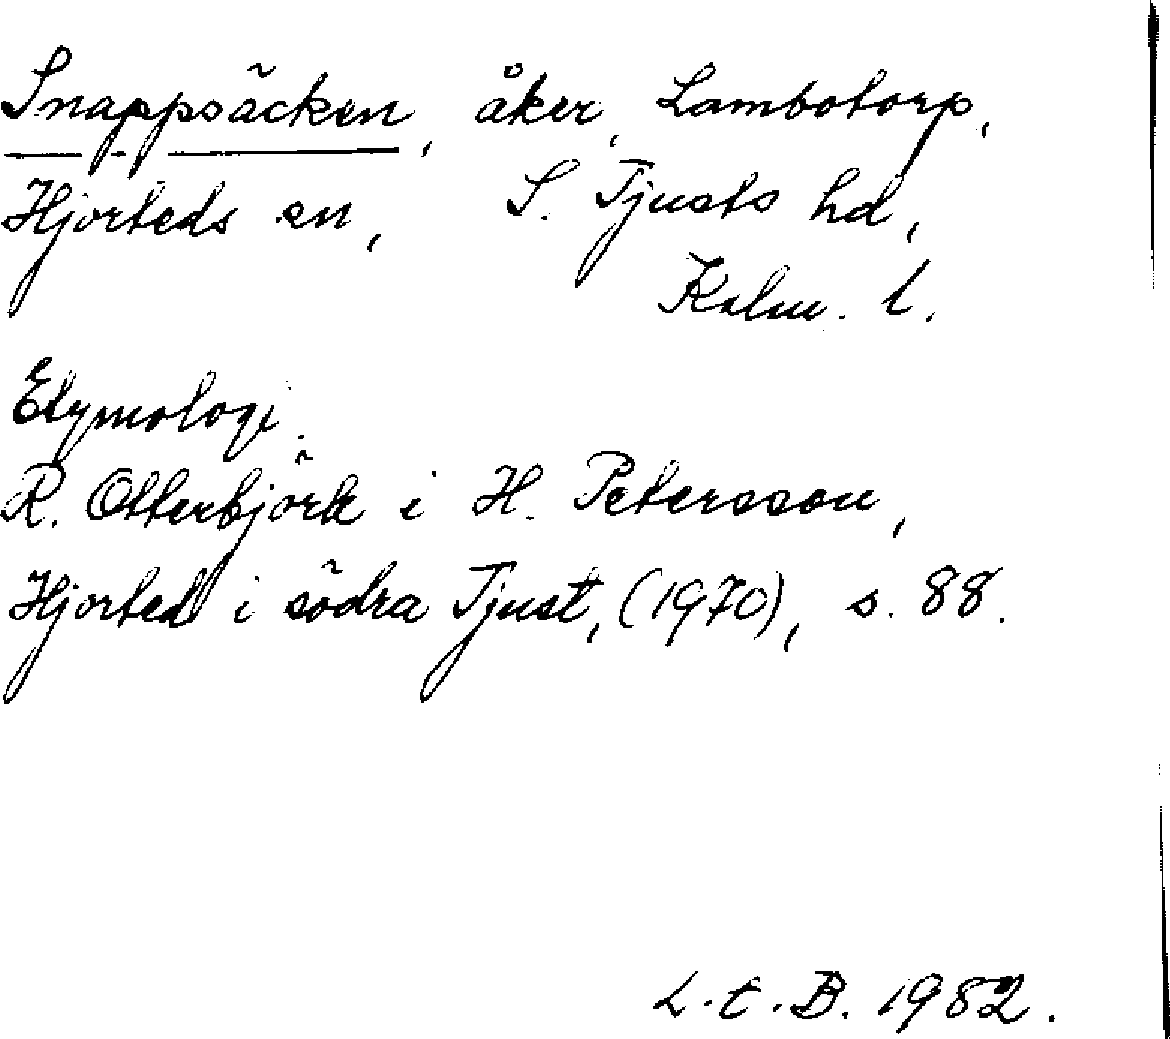 Snappsäcken, åker, Lambotorp,
Hjorteds sn, S. Tjusts hd,
Kalm. l.
Etymologi.
R. Otterbjörk i H. Petersson,
Hjorted i södra Tjust, (1970), s. 88.
L.E.B. 1982.